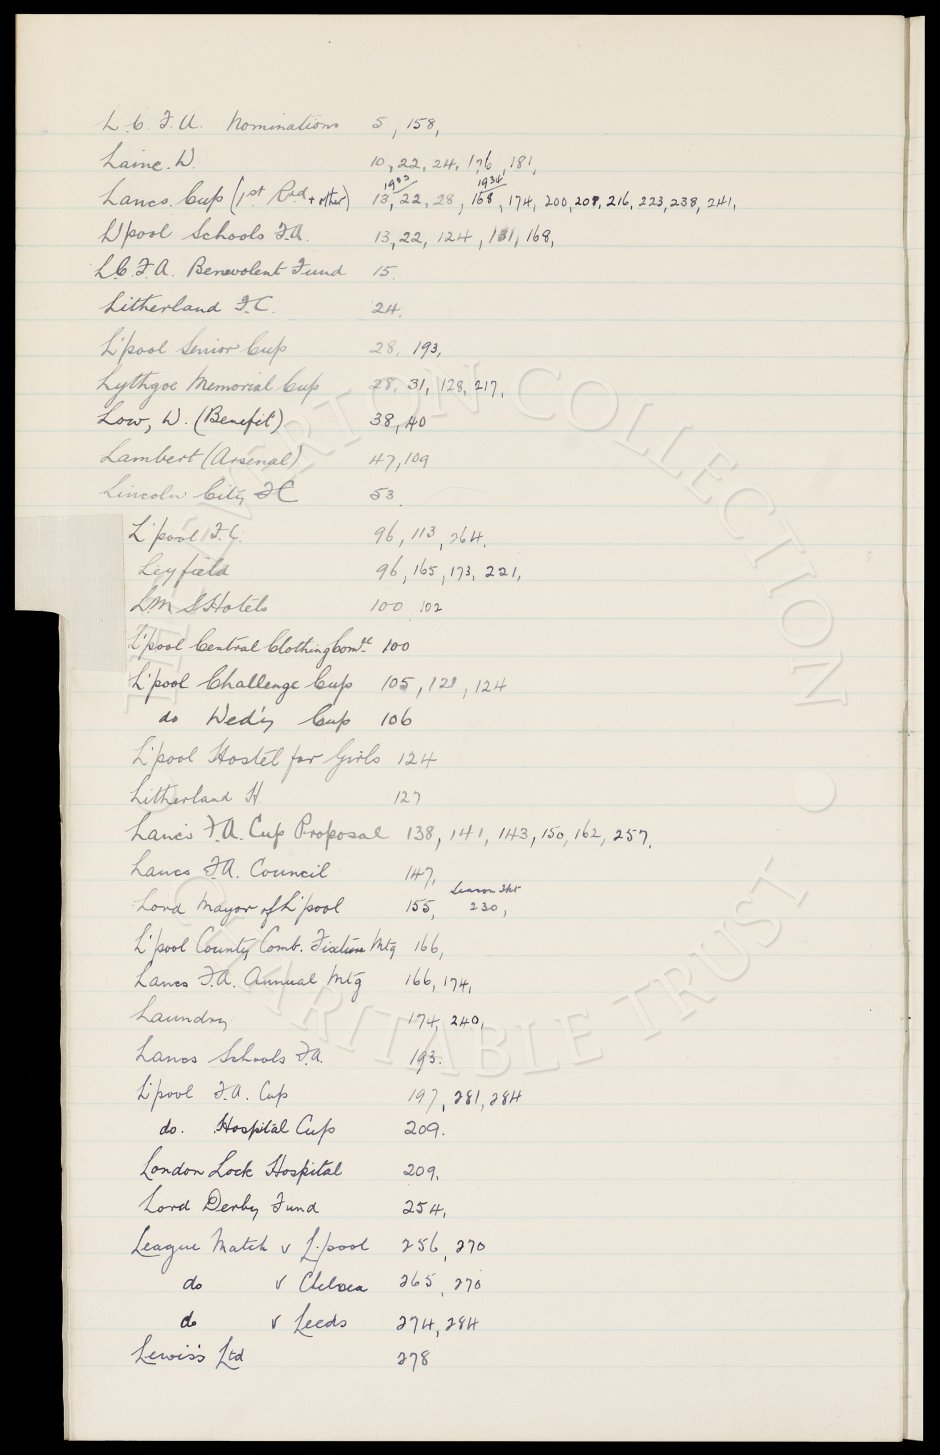 L.C.F.A. Nominations 5, 158,
Laine. W. 10, 22, 24, 176, 181,
1933 1934
Lancs. Cup (1st Rnd + other) 13, 22, 28, 168, 174, 200, 208, 216, 223, 238, 241,
L'pool Schools F.A. 13, 22, 124, 131, 168,
L.C.F.A. Benevolent Fund 15.
Litherland F.C. 24.
L'pool Senior Cup 28, 193,
Lythgoe Memorial Cup 28, 31, 128, 217,
Low, W. (Benefit) 38, 40
Lambert (Arsenal) 47, 109
Lincoln City FC 53
L'pool F.C. 96, 113, 264,
Leyfield 96, 165, 173, 221,
L.M.S Hotels 100, 102
L'pool Central Clothing Comtee 100
L'pool Challenge Cup 105, 121, 124
do Wed'y Cup 106
L'pool Hostel for Girls 124
Litherland H. 127
Lancs F.A. Cup Proposal 138, 141, 143, 150, 162, 257,
Lancs F.A. Council 147,
Season Tkt
Lord Mayor of L'pool 155, 230,
L'pool County Comb. Fixture Mtg 166,
Lancs F.A. Annual Mtg 166, 174,
Laundry 174, 240,
Lancs Schools F.A. 193.
L'pool F.A. Cup 197, 281, 284
do. Hospital Cup 209.
London Lock Hospital 209,
Lord Derby Fund 254,
League Match v L'pool 256, 270
do v Chelsea 265, 270
do v Leeds 274, 284
Lewis's Ltd 278
THE EVERTON COLLECTION
CHARITABLE TRUST